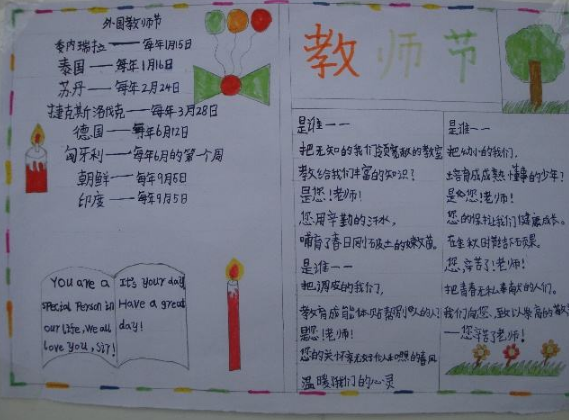 外国教师节
委内瑞拉——每年1月15日
泰国——每年1月16日
苏丹——每年2月24日
捷克斯洛伐克——每年3月28日
德国——每年6月12日
匈牙利——每年6月的第一个周
朝鲜——每年9月5日
印度——每年9月5日
You are a
special Person in
our life, We all
love you, Sir!
It's your day
Have a great
day!
教师节
是谁——
把无知的我们领宽敞的教室
教给我们丰富的知识?
是您!老师!
您用辛勤的汗水,
哺育了春日刚破土的嫩苗。
是谁——
把调皮的我们,
教育成能体贴帮别人的人?
是您!老师!
您的关怀就好似和煦的春风
温暖我们的心灵
是谁——
把幼小的我们,
培育成成熟懂事的少年?
是您!老师!
您的保护让我们健康成长。
在金秋时结下硕果。
您,辛苦了!老师!
把青春无私奉献的人们。
我们向您,致以崇高的敬
——您辛苦了老师!